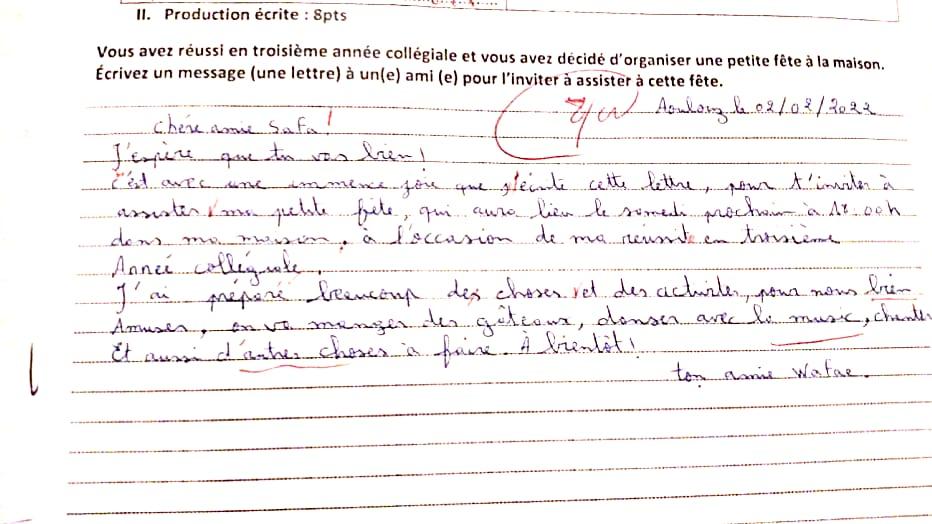 II. Production écrite : 8pts
Vous avez réussi en troisième année collégiale et vous avez décidé d'organiser une petite fête à la maison.
Écrivez un message (une lettre) à un(e) ami (e) pour l'inviter à assister à cette fête.
le 02/02/2022
chére amie Safa!
J'espère que tu vas bien!
c'est avec une immence joie que cette lettre, pour t'inviter à
assister ma petite fête, qui aura lieu le samedi prochain à
dans ma maison, à l'occasion de ma réussite en troisième
Année collégiale.
J'ai préparé beaucoup des choses et des activites, pour nous bien
Amuser, on va manger des gâteaux, danser avec la music, chanter
Et aussi d'autres choses à faire. À bientôt!
ton amie Wafae.